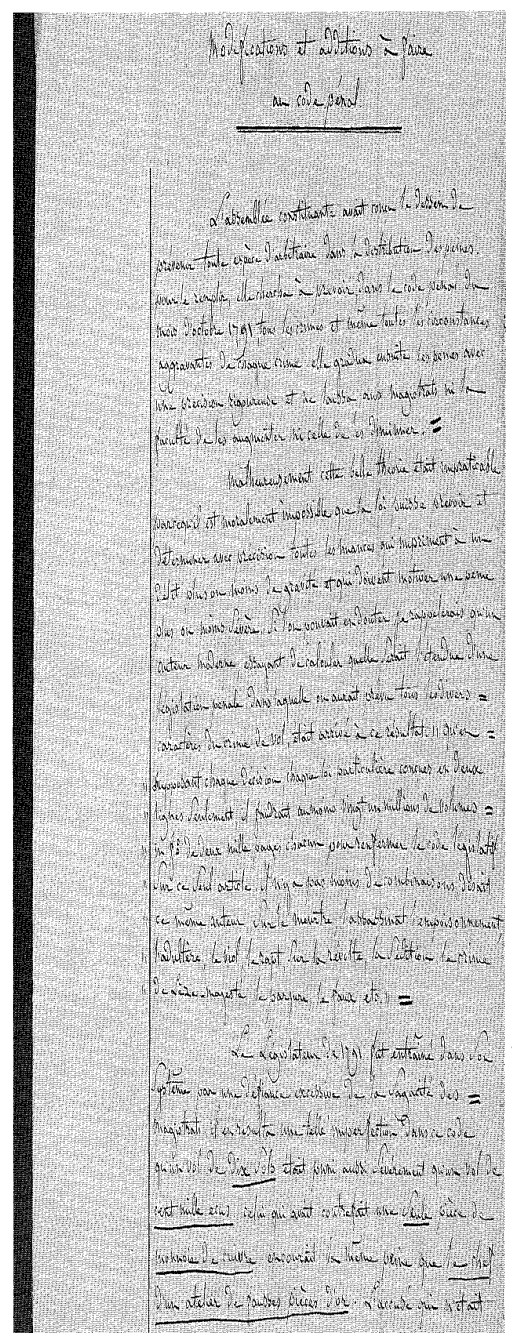 Modifications et additions à faire
au code pénal
L'assemblée constituante avait conçu le dessein de
prévenir toute espèce d'arbitraire dans la distribution des peines.
pour le remplir, elle chercha à prévoir dans le code pénal du
mois d'octobre 1791 tous les crimes et même toutes les circonstances
aggravantes de chaque crime. elle gradua ensuite les peines avec
une précision rigoureuse et ne laissa aux magistrats ni la
faculté de les augmenter ni celle de les diminuer. =
Malheureusement cette belle théorie était impraticable
parcequ'il est moralement impossible que la loi puisse prévoir et
déterminer avec précision toutes les nuances qui impriment à un
délit plus ou moins de gravité et qui doivent motiver une peine
plus ou moins sévère. Si l'on pouvait en douter je rappelerais qu'un
auteur moderne essayant de calculer quelle serait l'étendue d'une
législation pénale dans laquelle on aurait prévu tous les divers =
caractères du crime de vol, était arrivé à ce résultat : " qu'en =
" supposant chaque décision chaque loi particulière conçues en deux
" lignes seulement il faudrait au moins vingt un millions de volumes =
" in f° de deux mille pages chacun pour renfermer le code législatif
" sur ce seul article. Il n'y a pas moins de combinaisons disait
ce même auteur sur le meurtre l'assassinat l'empoisonnement,
" l'adultère, le viol le rapt sur la révolte, la sédition le crime
" de Lèze-majesté le parjure, le faux etc. " =
Le Législateur de 1791 fut entraîné dans son
système par une défiance excessive de la sagacité des =
magistrats il en resulta une telle imperfection dans ce code
qu'un vol de dix sols était puni aussi sévèrement qu'un vol de
cent mille ecus celui qui avait contrefait une seule pièce de
monnoie de cuivre encourait la même peine que le chef
d'un atelier de fausses pièces d'or. L'accusé qui s'était